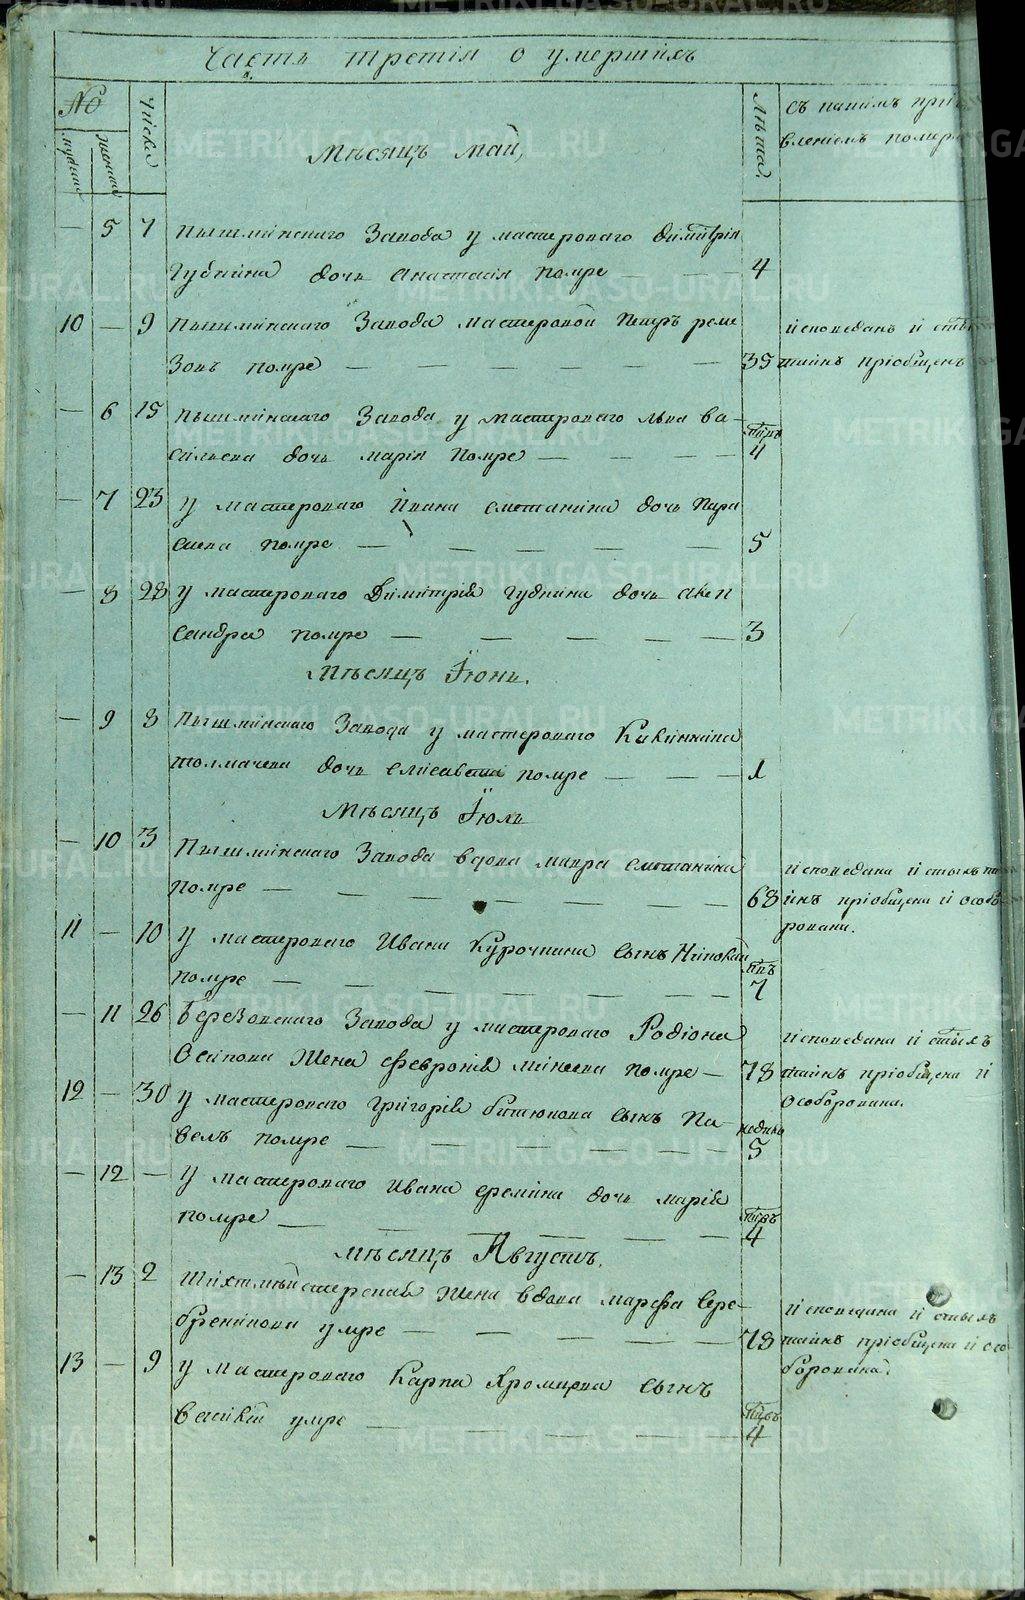 Часть третія о умершихъ
№
мужеска
женска
Числа
Мѣсяцъ май,
Лѣта.
Съ какимъ
влениемъ
— 5 7 Пышминскаго Завода у мастероваго димитрія
Губкина дочь Анастасія помре — — 4
10 — 9 Пышминскаго Завода мастеровой Петръ реме
зовъ помре — — — — — — 35
исповеданъ и
тайнъ пріобщенъ
— 6 15 Пышминскаго Завода у мастероваго льва ва-
сильева дочь марія помре — — — — 4
— 7 23 у мастероваго Ивана сметанина дочь Пара
скева помре — — — — — 5
— 8 28 у мастероваго Димитрія губкина дочь алек
сандра помре — — — — — 3
Мѣсяцъ Іюнь.
— 9 8 Пышминскаго Завода у мастероваго
толмачева дочь елисавета помре — — — 1
Мѣсяцъ Іюль
— 10 3 Пышминскаго Завода вдова мавра сметанина
помре — — — — — — 68
исповедана и стыхъ
инъ пріобщена и особо
рована.
11 — 10 у мастероваго Ивана Курочкина сынъ
помре — — — — — — 7
— 11 26 березовскаго Завода у мастероваго Родіона
Осипова жена феврония минеева помре — 78
исповедана и стыхъ
тайнъ пріобщена и
Особорована.
12 — 30 у мастероваго григорія битюкова сынъ Па-
велъ помре — — — — — — 5
— 12 — у мастероваго ивана еремина дочь марія
помре — — — — — — 4
мѣсяцъ Августъ.
— 13 2 Шихтмейстерская жена вдова марфа сере-
бреникова умре — — — — — 78
исповедана и стыхъ
тайнъ пріобщена и осо
борована.
13 — 9 у мастероваго Карпа Хромцова сынъ
умре — — — — — 4
METRIKI.GASO-URAL.RU